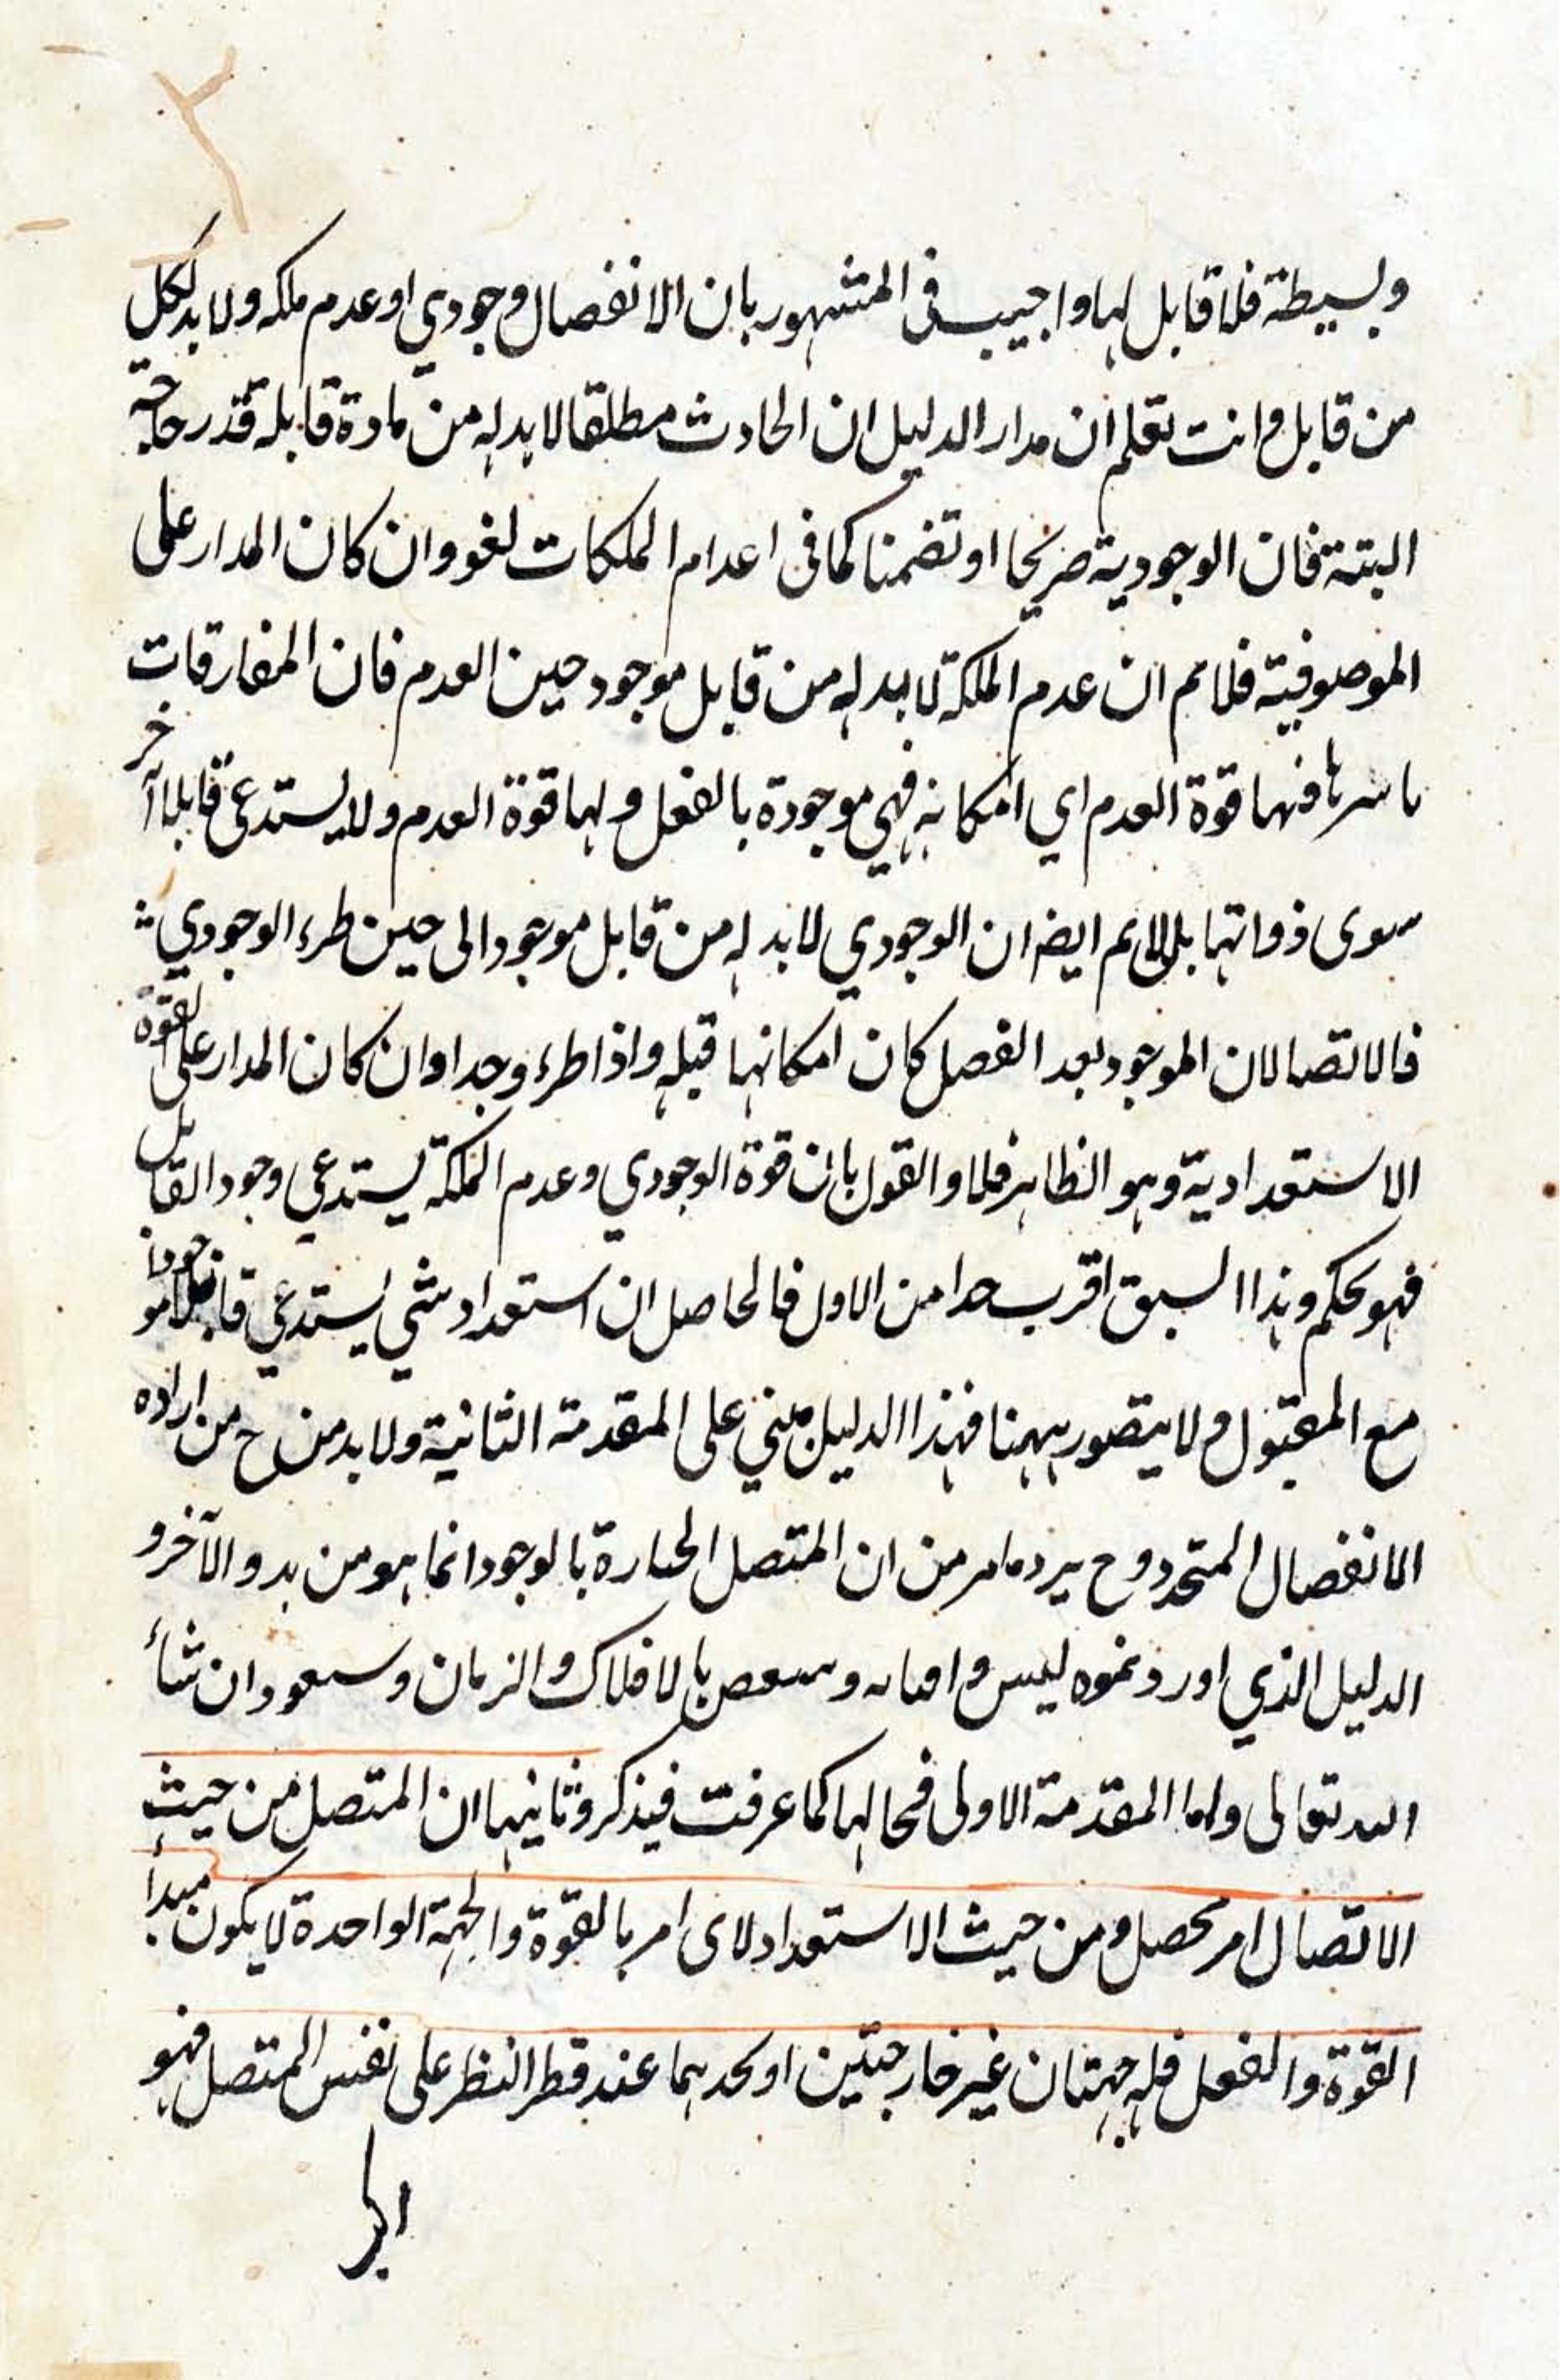 وبسيطة فلا قابل لها واجيب في المشهور بان الانفصال وجودي او عدم ملكه ولا بد لكل
من قابل وانت تعلم ان مدار الدليل ان الحادث مطلقا لا بد له من مادة قابله قدر حاجة
البتة فان الوجودية صريحا او تضمنا كما في اعدام الملكات لغو وان كان المدار على
الموصوفية فلانم ان عدم الملكة لا بد له من قابل موجود حين العدم فان المفارقات
باسرها فيها قوة العدم اي امكانه فهي موجودة بالفعل ولها قوة العدم ولا يستدعي قابلا آخر
سوى ذواتها بل لانم ايضا ان الوجودي لا بد له من قابل موجود الى حين طرء الوجودي
فالاتصالان الموجود بعد الفصل كان امكانها قبله واذا طرء وجدا وان كان المدار على القوة
الاستعدادية وهو الظاهر فلا والقول بان قوة الوجودي وعدم الملكة يستدعي وجود القابل
فهو تحكم وهذا السبق اقرب حدا من الاول فالحاصل ان استعداد شي يستدعي قابلا موجودا
مع المقبول ولا يتصور ههنا فهذا الدليل مبني على المقدمة الثانية ولا بد من ح من اراده
الانفصال المتجدد وح يرد ما مر من ان المتصل الحارة بالوجود انما هو من بدو الآخر و
الدليل الذي اورد نحوه ليس و بالافلاك والزمان وسنعود ان شاء
الله تعالى واما المقدمة الاولى فحالها كما عرفت فيذكر وثانيها ان المتصل من حيث
الاتصال امر محصل ومن حيث الاستعداد لاى امر بالقوة والجهة الواحدة لا يكون مبدأ
القوة والفعل فله جهتان غير خارجتين او احدهما عند قطر النظر على نفس المتصل فهو